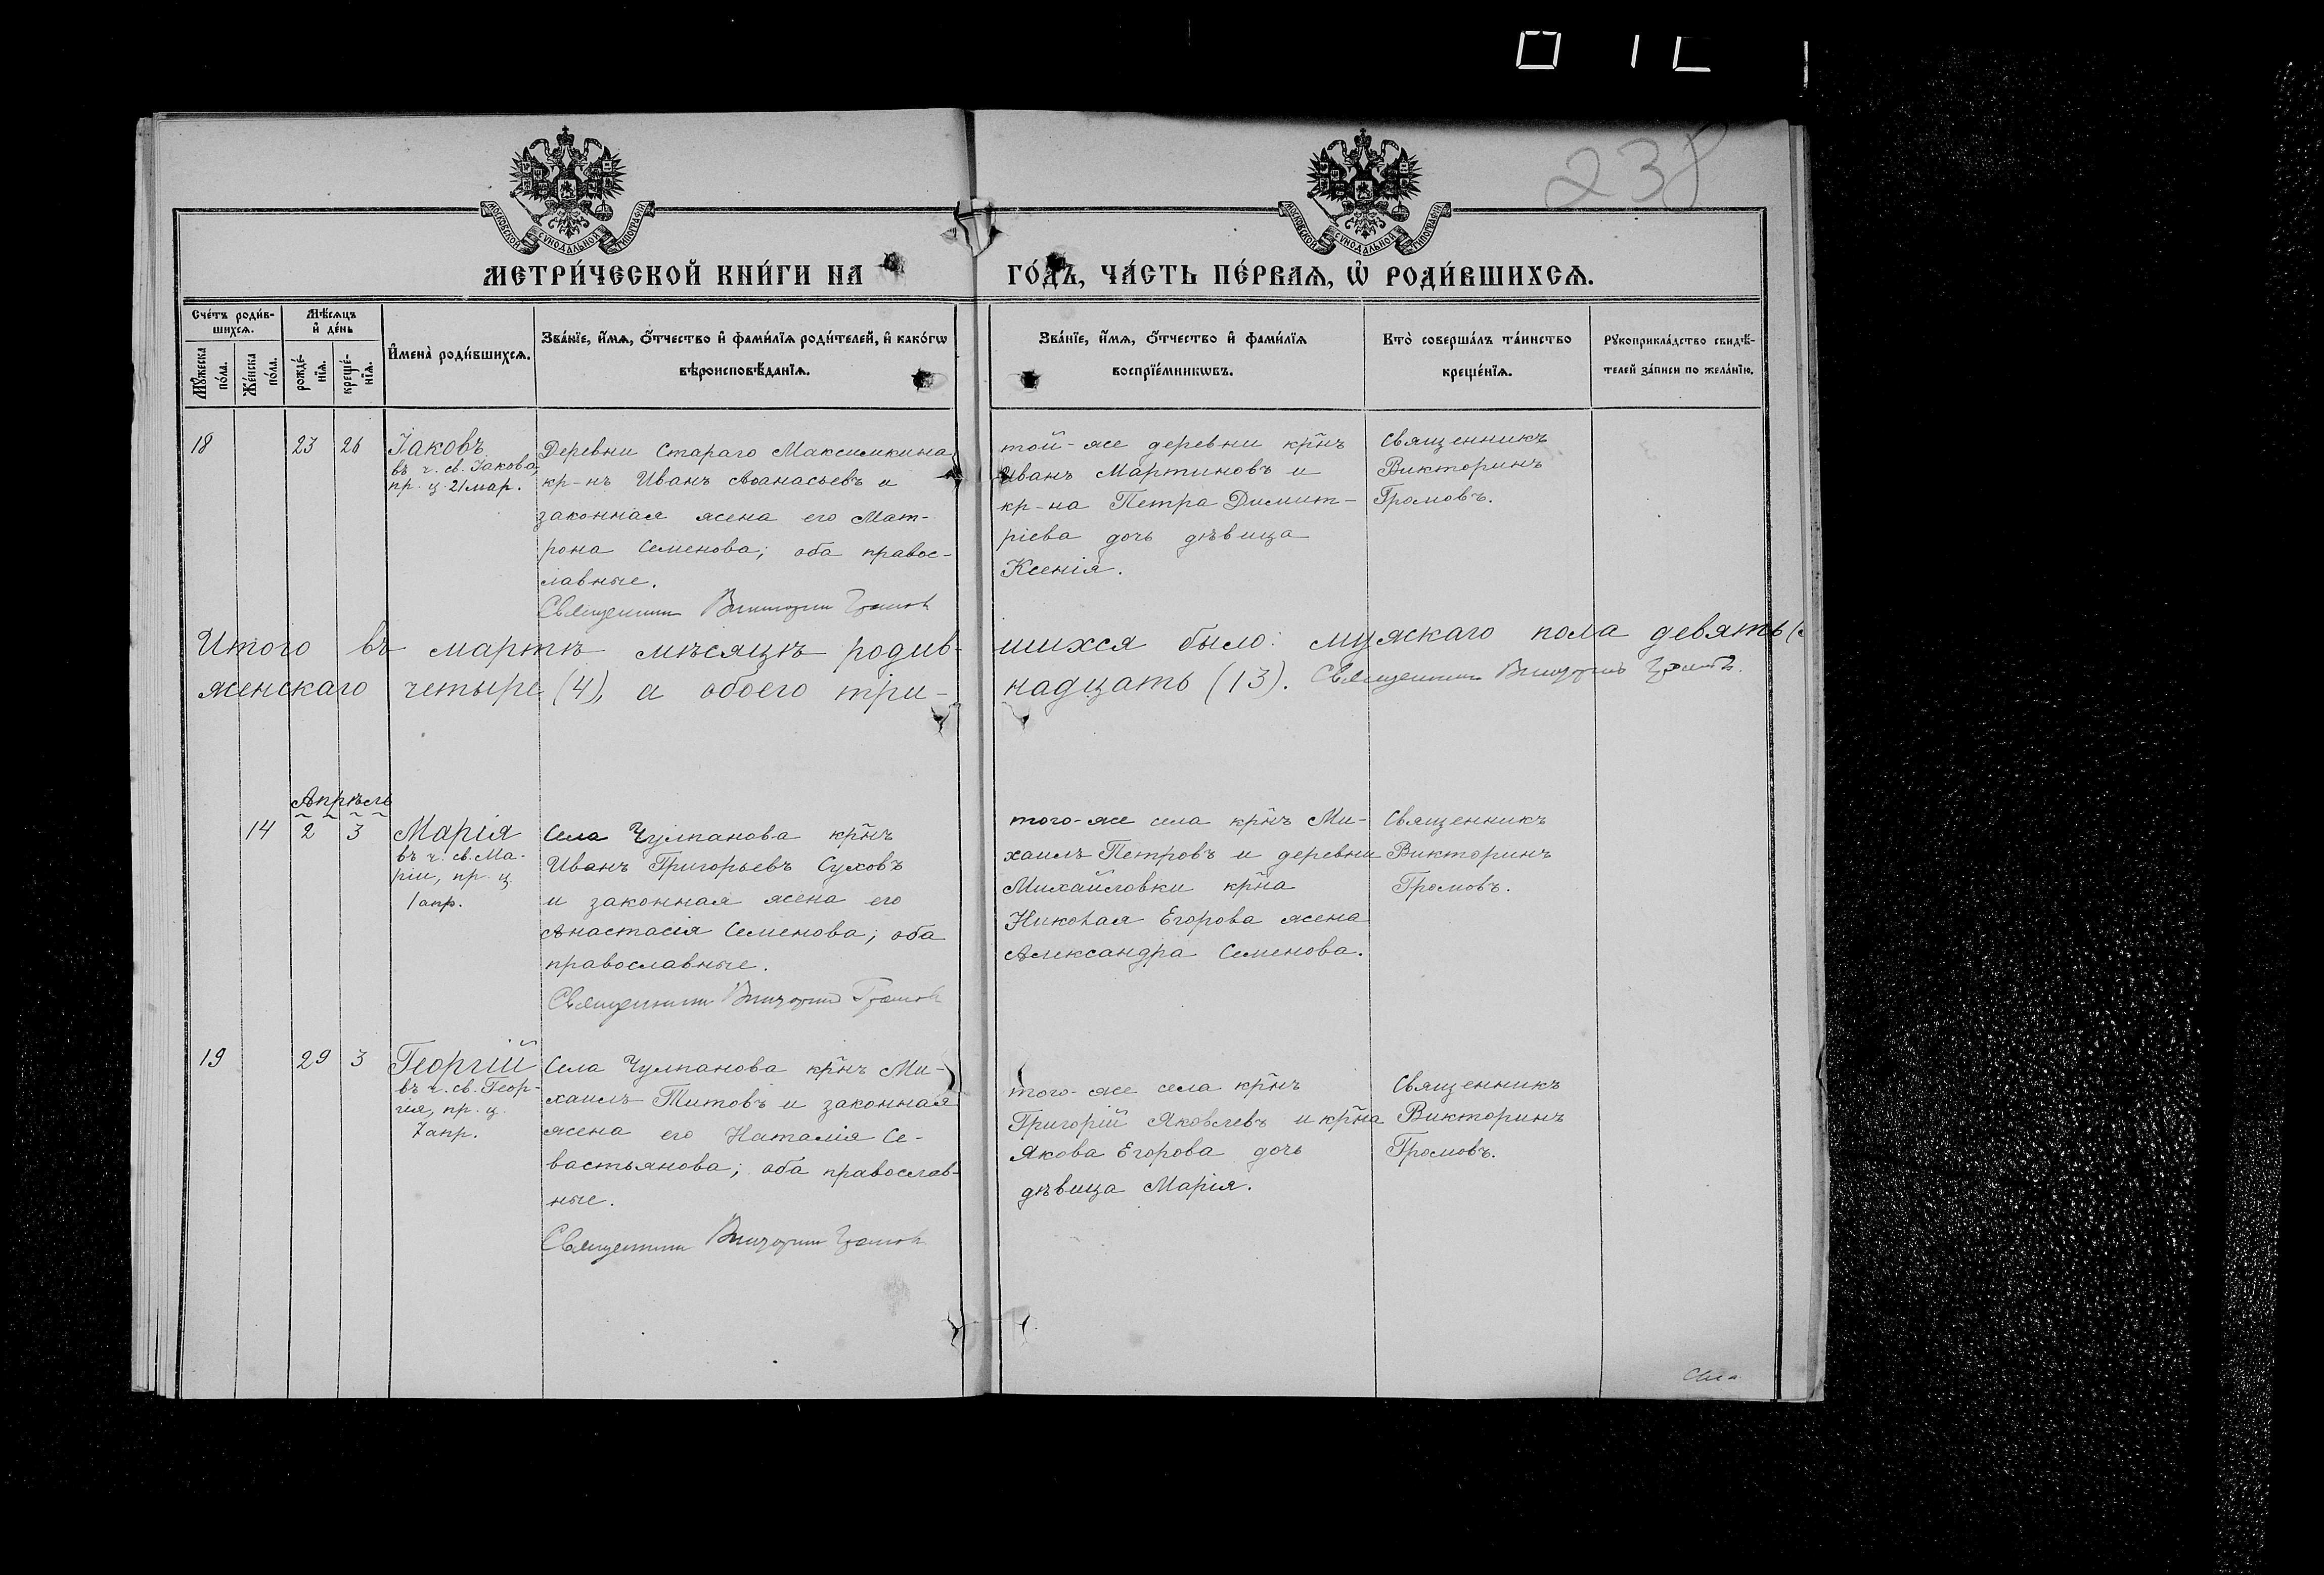 238
МОСКОВСКОЙ СѴНОДАЛЬНОЙ ТИПОГРАФІИ
МОСКОВСКОЙ СѴНОДАЛЬНОЙ ТИПОГРАФІИ
МЕТРИ́ЧЕСКОЙ КНИ́ГИ НА ГО́ДЪ, ЧА́СТЬ ПЕ́РВАѦ, Ѡ҆ РОДИ́ВШИХСѦ.
Сче́тъ роди́в-
шихсѧ.
Мꙋжеска
по́ла.
Же́нска
по́ла.
Мѣ́сѧцъ
и҆ де́нь
рожде́-
нїѧ.
креще́-
нїѧ.
И҆мена̀ роди́вшихсѧ.
Зва́нїе, и҆́мѧ, ѻ҆́тчество и҆ фами́лїѧ роди́телей, и҆ како́гѡ
вѣроисповѣ́данїѧ.
Зва́нїе, и҆́мѧ, ѻ҆́тчество и҆ фами́лїѧ
воспрїе́мникѡвъ.
Кто̀ соверша́лъ та́инство
креще́нїѧ.
Рꙋкоприкла́дство свидѣ́-
телей за́писи по жела́нїю.
18 23 26 Іаковъ
въ ч. св. Іакова,
пр. ц. 21 мар.
Деревни Стараго Максимкина
кр-нъ Иванъ Аѳанасьевъ и
законная жена его Мат-
рона Семенова; оба правос-
лавные.
Священникъ Викторинъ Громовъ
той-же деревни кр̃нъ
Иванъ Мартиновъ и
кр-на Петра Димит-
ріева дочь дѣвица
Ксенія.
Священникъ
Викторинъ
Громовъ.
Итого въ мартѣ мѣсяцѣ родив-шихся было: мужскаго пола девять
женскаго четыре (4), а обоего три-надцать (13). Священникъ Викторинъ Громовъ.
Апрѣль
14 2 3 Марія
въ ч. св. Ма-
ріи, пр. ц.
1 апр.
Села Чулпанова кр̃нъ
Иванъ Григорьевъ Суховъ
и законная жена его
Анастасія Семенова; оба
православные.
Священникъ Викторинъ Громовъ
того-же села кр̃нъ Ми-
хаилъ Петровъ и деревни
Михайловки кр̃на
Николая Егорова жена
Александра Семенова.
Священникъ
Викторинъ
Громовъ.
19 29 3 Георгій
въ ч. св. Геор-
гія, пр. ц.
7 апр.
Села Чулпанова кр̃нъ Ми-
хаилъ Титовъ и законная
жена его Наталія Се-
вастьянова; оба православ-
ные.
Священникъ Викторинъ Громовъ
того-же села кр̃нъ
Григорій Яковлевъ и кр̃на
Якова Егорова дочь
дѣвица Марія.
Священникъ
Викторинъ
Громовъ.